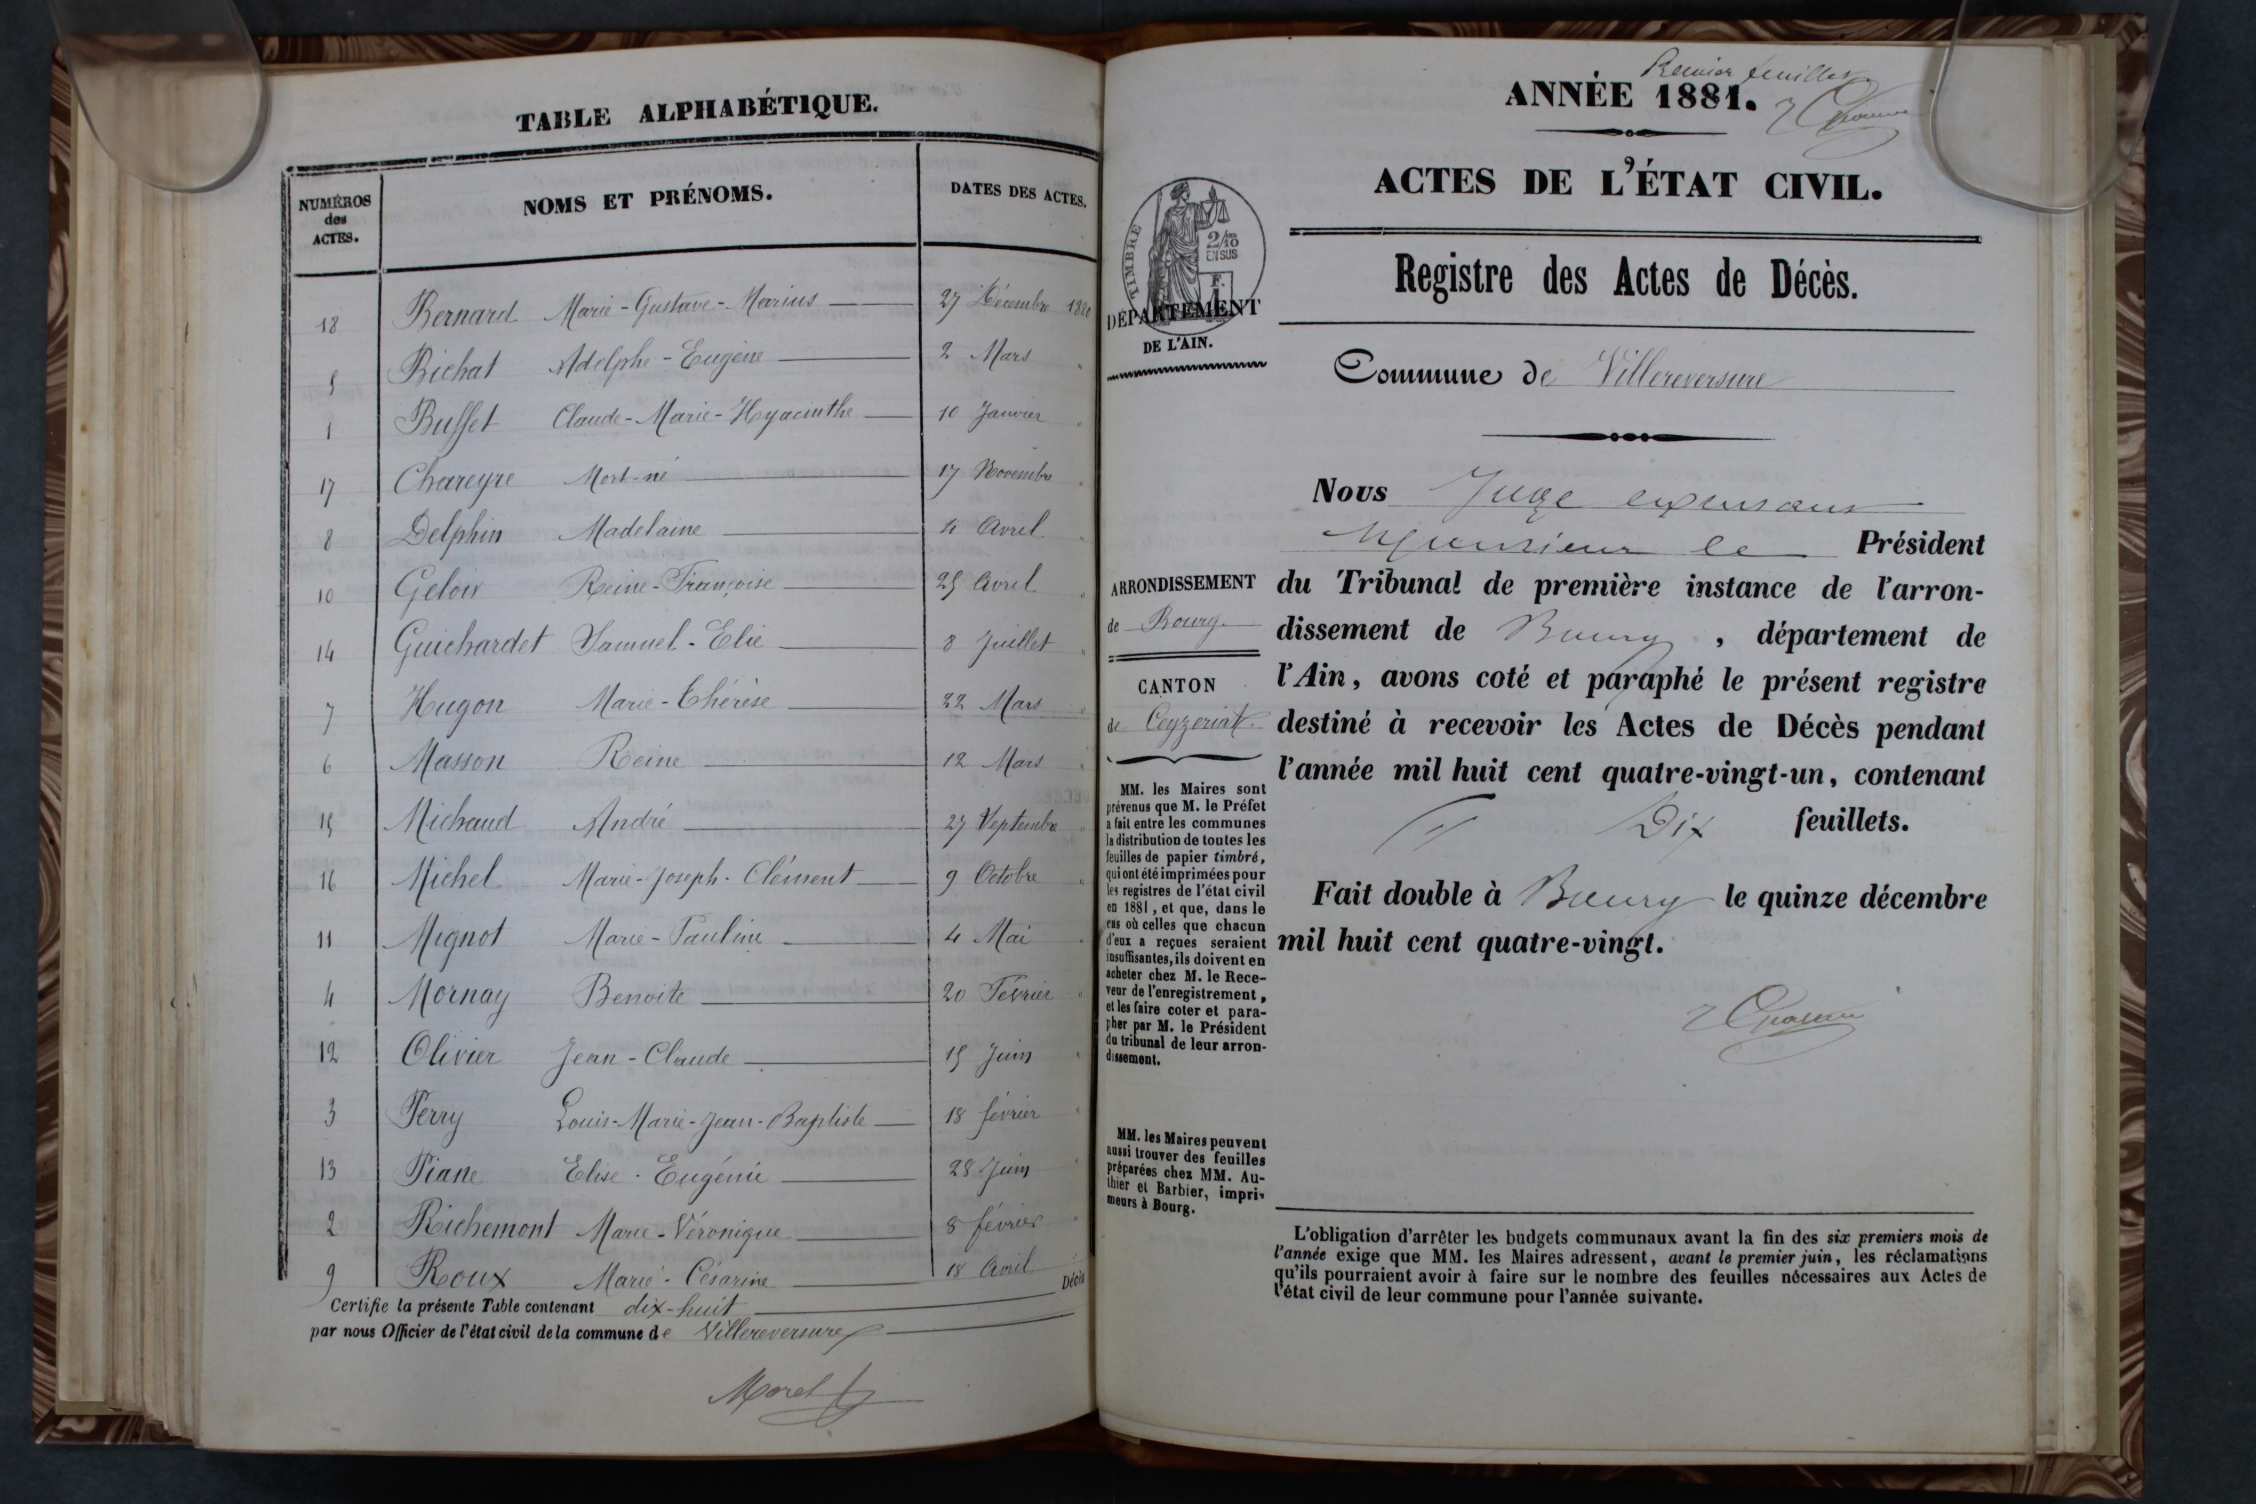 TABLE ALPHABÉTIQUE.
NUMÉROS des ACTES. NOMS ET PRÉNOMS. DATES DES ACTES.
18 Bernard Marie-Gustave-Marius 27 Décembre 1880
5 Bichat Adolphe-Eugène 2 Mars "
1 Buffet Claude-Marie-Hyacinthe 10 Janvier "
17 Chareyre Mort-né 17 Novembre "
8 Delphin Madelaine 4 Avril "
10 Geloin Reine-Françoise 25 Avril "
14 Guichardet Samuel-Elie 8 Juillet "
7 Hugon Marie-Thérèse 22 Mars "
6 Masson Reine 12 Mars "
15 Michaud André 27 Septembre "
16 Michel Marie-Joseph-Clément 9 Octobre "
11 Mignot Marie-Pauline 4 Mai "
4 Mornay Benoite 20 Février "
12 Olivier Jean-Claude 15 Juin "
3 Perry Louis-Marie-Jean-Baptiste 18 février "
13 Piane Elise-Eugénie 28 Juin "
2 Richemont Marie-Véronique 8 février "
9 Roux Marie-Césarine 18 Avril
Certifie la présente Table contenant dix-huit Décès
par nous Officier de l'état civil de la commune de Villereversure
Morel
Premier feuillet
ANNÉE 1881.
ACTES DE L'ÉTAT CIVIL.
Registre des Actes de Décès.
TIMBRE
2/10 EN SUS
F.
DÉPARTEMENT
DE L'AIN.
Commune de Villereversure
ARRONDISSEMENT
de Bourg
CANTON
de Ceyzeriat
MM. les Maires sont
prévenus que M. le Préfet
a fait entre les communes
la distribution de toutes les
feuilles de papier timbré,
qui ont été imprimées pour
les registres de l'état civil
en 1881, et que, dans le
cas où celles que chacun
d'eux a reçues seraient
insuffisantes, ils doivent en
acheter chez M. le Rece-
veur de l'enregistrement,
et les faire coter et para-
pher par M. le Président
du tribunal de leur arron-
dissement.
MM. les Maires peuvent
aussi trouver des feuilles
préparées chez MM. Au-
thier et Barbier, impri-
meurs à Bourg.
Nous Juge
Monsieur le Président
du Tribunal de première instance de l'arron-
dissement de Bourg, département de
l'Ain, avons coté et paraphé le présent registre
destiné à recevoir les Actes de Décès pendant
l'année mil huit cent quatre-vingt-un, contenant
Dix feuillets.
Fait double à Bourg le quinze décembre
mil huit cent quatre-vingt.
L'obligation d'arrêter les budgets communaux avant la fin des six premiers mois de
l'année exige que MM. les Maires adressent, avant le premier juin, les réclamations
qu'ils pourraient avoir à faire sur le nombre des feuilles nécessaires aux Actes de
l'état civil de leur commune pour l'année suivante.